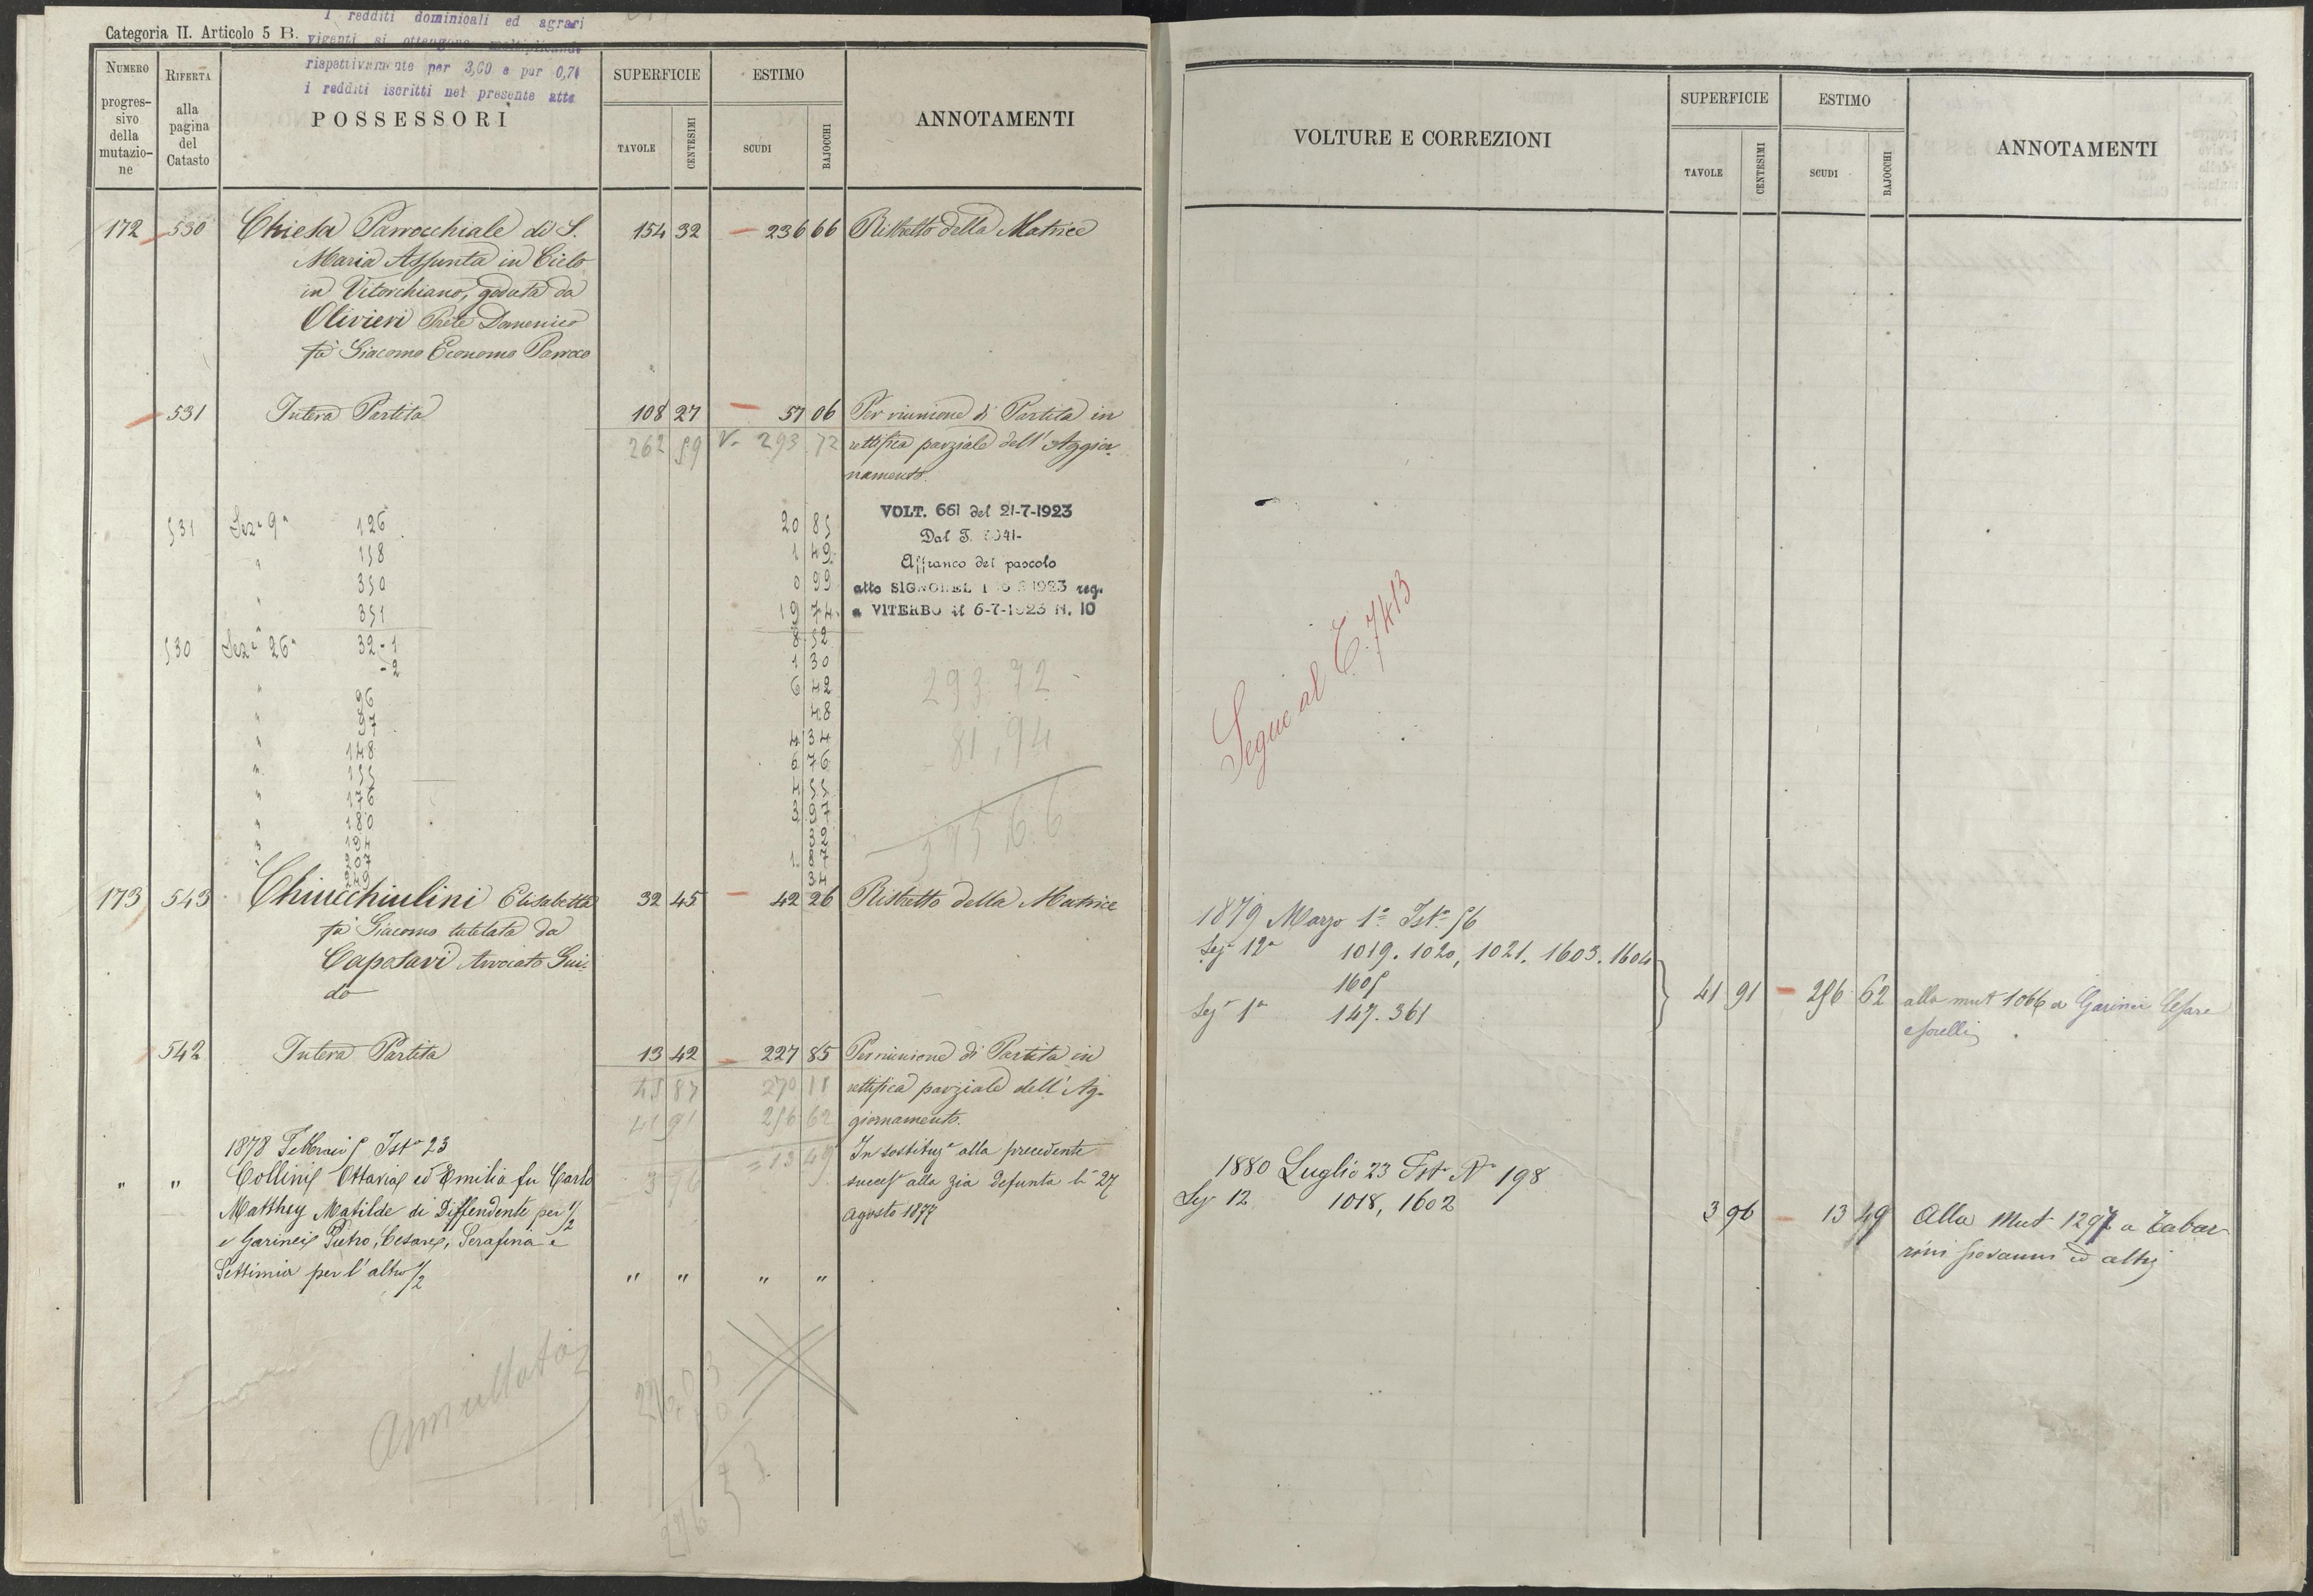 Categoria II. Articolo 5 B.
I redditi dominicali ed agrari
vigenti si ottengono moltiplicando
rispettivamente per 3,60 e per
i redditi iscritti nel presente atto
NUMERO progressivo della mutazione
RIFERTA alla pagina del Catasto
POSSESSORI
SUPERFICIE
TAVOLE
CENTESIMI
ESTIMO
SCUDI
BAJOCCHI
ANNOTAMENTI
172 530 Chiesa Parrocchiale di S. 154 32 236 66 Ristretto della Matrice
Maria Assunta in Cielo
in Vitorchiano, goduta da
Olivieri Prete Domenico
fu Giacomo Economo Parroco
531 Intera Partita 108 27 57 06 Per riunione di Partita in
262 59 293 72 rettifica parziale dell' Aggior
namento.
VOLT. 661 del 21-7-1923
531 Sez.e 9a 126 20 85
Dal T.
" 158 1 49
Affranco del pascolo
350 0 99
atto 1923 reg.
" 351 19 74
a VITERBO il 6-7-1923 N. 10
8 52
530 Sez.e 26a 32-1 1 30
-2 6 42
" 96 48
" 97 4 34
" 148 6 76
" 155
" 176
" 180
" 194
" 207
293.72
81,94
173 543 Chiucchiulini Elisabetta 32 45 42 26 Ristretto della Matrice
fu Giacomo tutelata da
Capotavi Avvocato Gui-
do
542 Intera Partita 13 42 227 85 Per riunione di Partita in
45 87 270 11 rettifica parziale dell' Ag-
41 91 256 62 giornamento.
3 96 = 13 49
1878 Febbraio 5 Ist.a 23
In sostituz.e alla precedente
" " Collinis Ottavia ed Emilia fu Carlo
success alla zia defunta li 27
Agosto 1877
Matthey Matilde di Diffendente per 1/2
e Garineis Pietro, Cesare, Serafina e
Settimia per l'altro 1/2 " " " "
annullata
VOLTURE E CORREZIONI
SUPERFICIE
TAVOLE
CENTESIMI
ESTIMO
SCUDI
BAJOCCHI
ANNOTAMENTI
Segue al T. 7413
1879 Marzo 1° Ist.a 56
Sez.e 12a 1019. 1020, 1021. 1603. 1604
1605
41 91 256 62 alla mut 1066 a Garinei Cesare
Sez.e 1a 147. 361
e sorelli
1880 Luglio 23 Ist.a N° 198
Sez 12 1018, 1602
3 96 13 49 Alla Mut 1297 a Tabar-
rini Giovanni ed altri